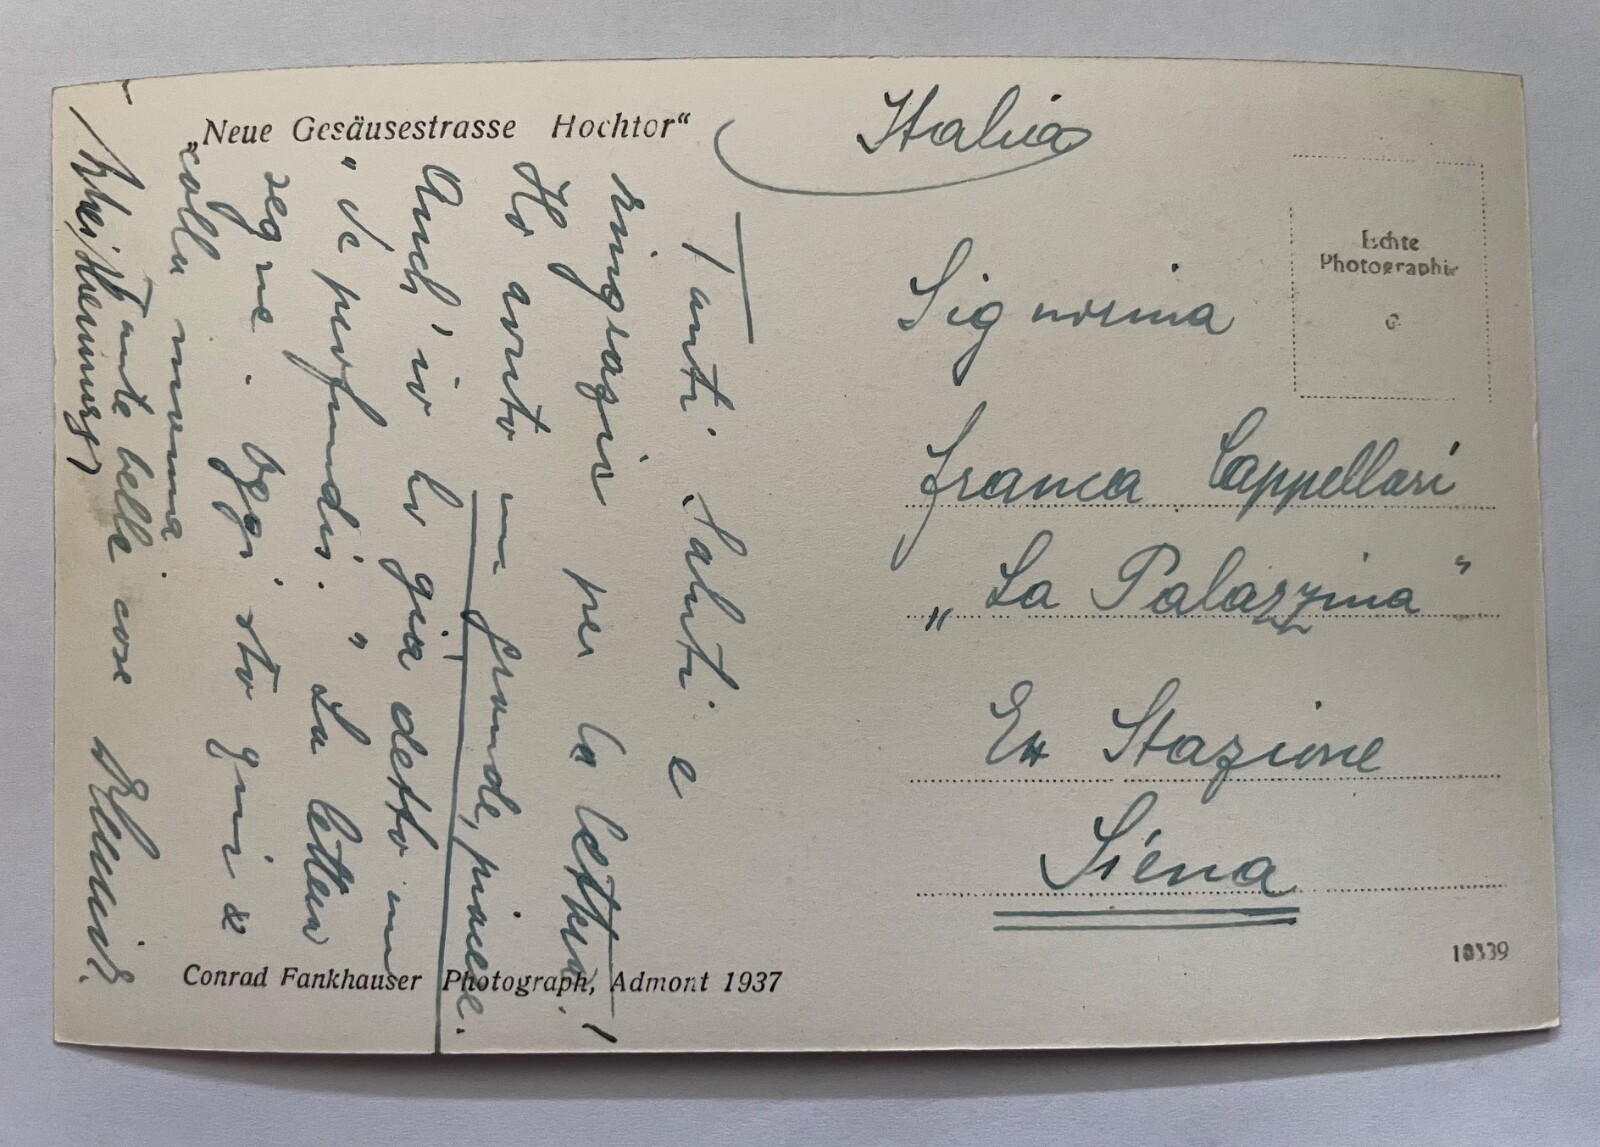 „Neue Gesäusestrasse Hochtor“
Italia
Echte
Photographie
Signorina
Franca Cappellari
„La Palazzina“
Ex Stazione
Siena
10339
Conrad Fankhauser Photograph, Admont 1937
Tanti Saluti e
ringrazie per la lettera!
Ho avuto un grande, piacere.
Anch'io ho già detto un
"de profundis." La lettera
segue. Oggi sto qui &
colla mamma.
Tante belle cose